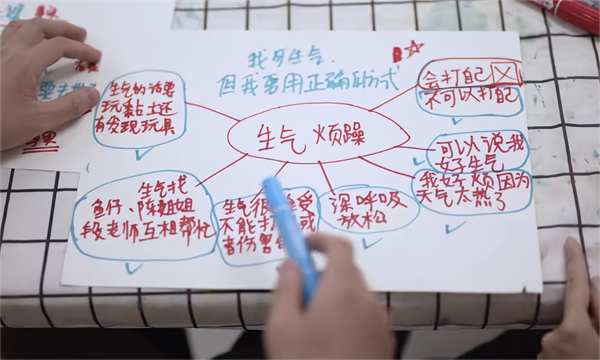 我可生气.
但我要用正确的方式
会打自己
不可以打自己
生气的话要
玩黏土还
有发现玩具
生气 烦躁
可以说我
好生气
我好烦因为
天气太热了
生气找
鱼仔、陈姐姐
段老师互相帮忙
生气很 受
不能打 或
者伤害
深呼吸
放松